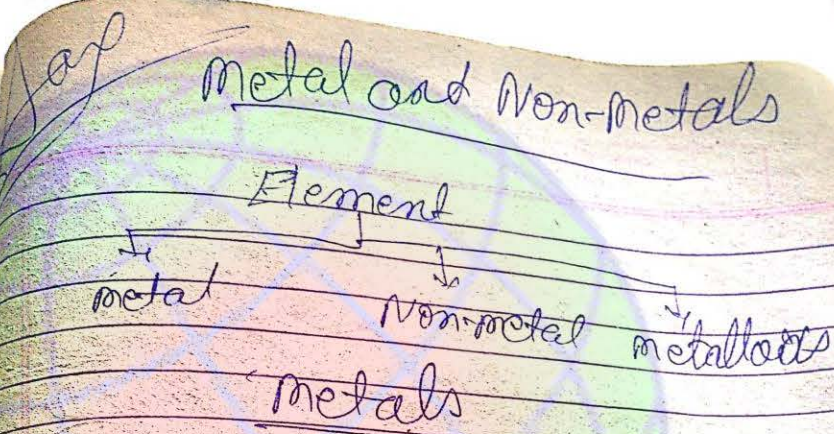 Metal and Non-Metals
Element
metal Non-metal metalloids
Metals